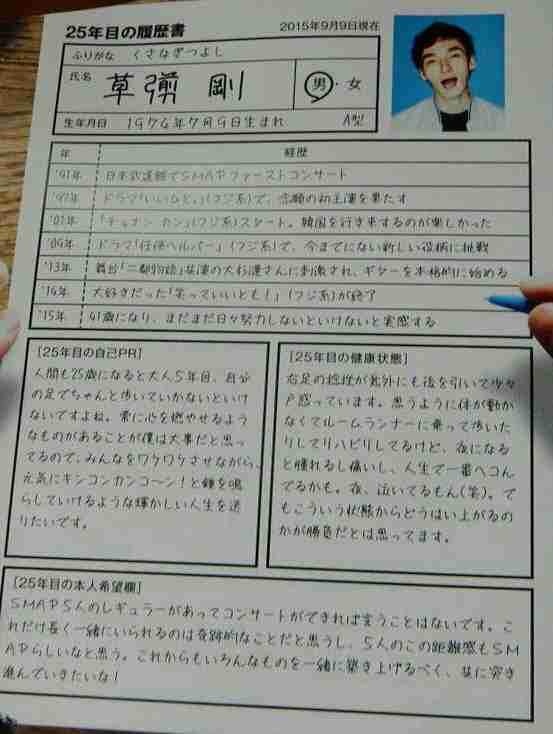 25年目の履歴書
2015年9月9日現在
ふりがな くさなぎつよし
氏名 草彅 剛 男・女
生年月日 1974年7月9日生まれ A型
年 経歴
'91年 日本武道館でSMAPファーストコンサート
'97年 ドラマ「いいひと。」(フジ系)で、念願の初主演を果たす
'01年 「チョナン・カン」(フジ系)スタート。韓国を行き来するのが楽しかった
'09年 ドラマ「任侠ヘルパー」(フジ系)で、今までにない新しい役柄に挑戦
'13年 舞台「二都物語」共演の大杉漣さんに刺激され、ギターを本格的に始める
'14年 大好きだった「笑っていいとも！」(フジ系)が終了
'15年 41歳になり、まだまだ日々努力しないといけないと実感する
[25年目の自己PR]
人間も25歳になると大人5年目、自分
の足でちゃんと歩いていかないといけ
ないですよね。常に心を燃やせるよう
なものがあることが僕は大事だと思っ
てるので、みんなをワクワクさせながら、
元気にキンコンカンコ〜ン！と鐘を鳴
らしていけるような輝かしい人生を送
りたいです。
[25年目の健康状態]
右足の捻挫が意外にも後を引いて少々
戸惑っています。思うように体が動か
なくてルームランナーに乗って歩いた
りしてリハビリしてるけど、夜になる
と腫れるし痛いし、人生で一番ヘコん
でるかも。夜、泣いてるもん(笑)。で
もこういう状態からどうはい上がるの
かが勝負だとは思ってます。
[25年目の本人希望欄]
SMAP5人のレギュラーがあってコンサートができれば言うことはないです。こ
れだけ長く一緒にいられるのは奇跡的なことだと思うし、5人のこの距離感もSM
APらしいなと思う。これからもいろんなものを一緒に築き上げるべく、共に突き
進んでいきたいな！